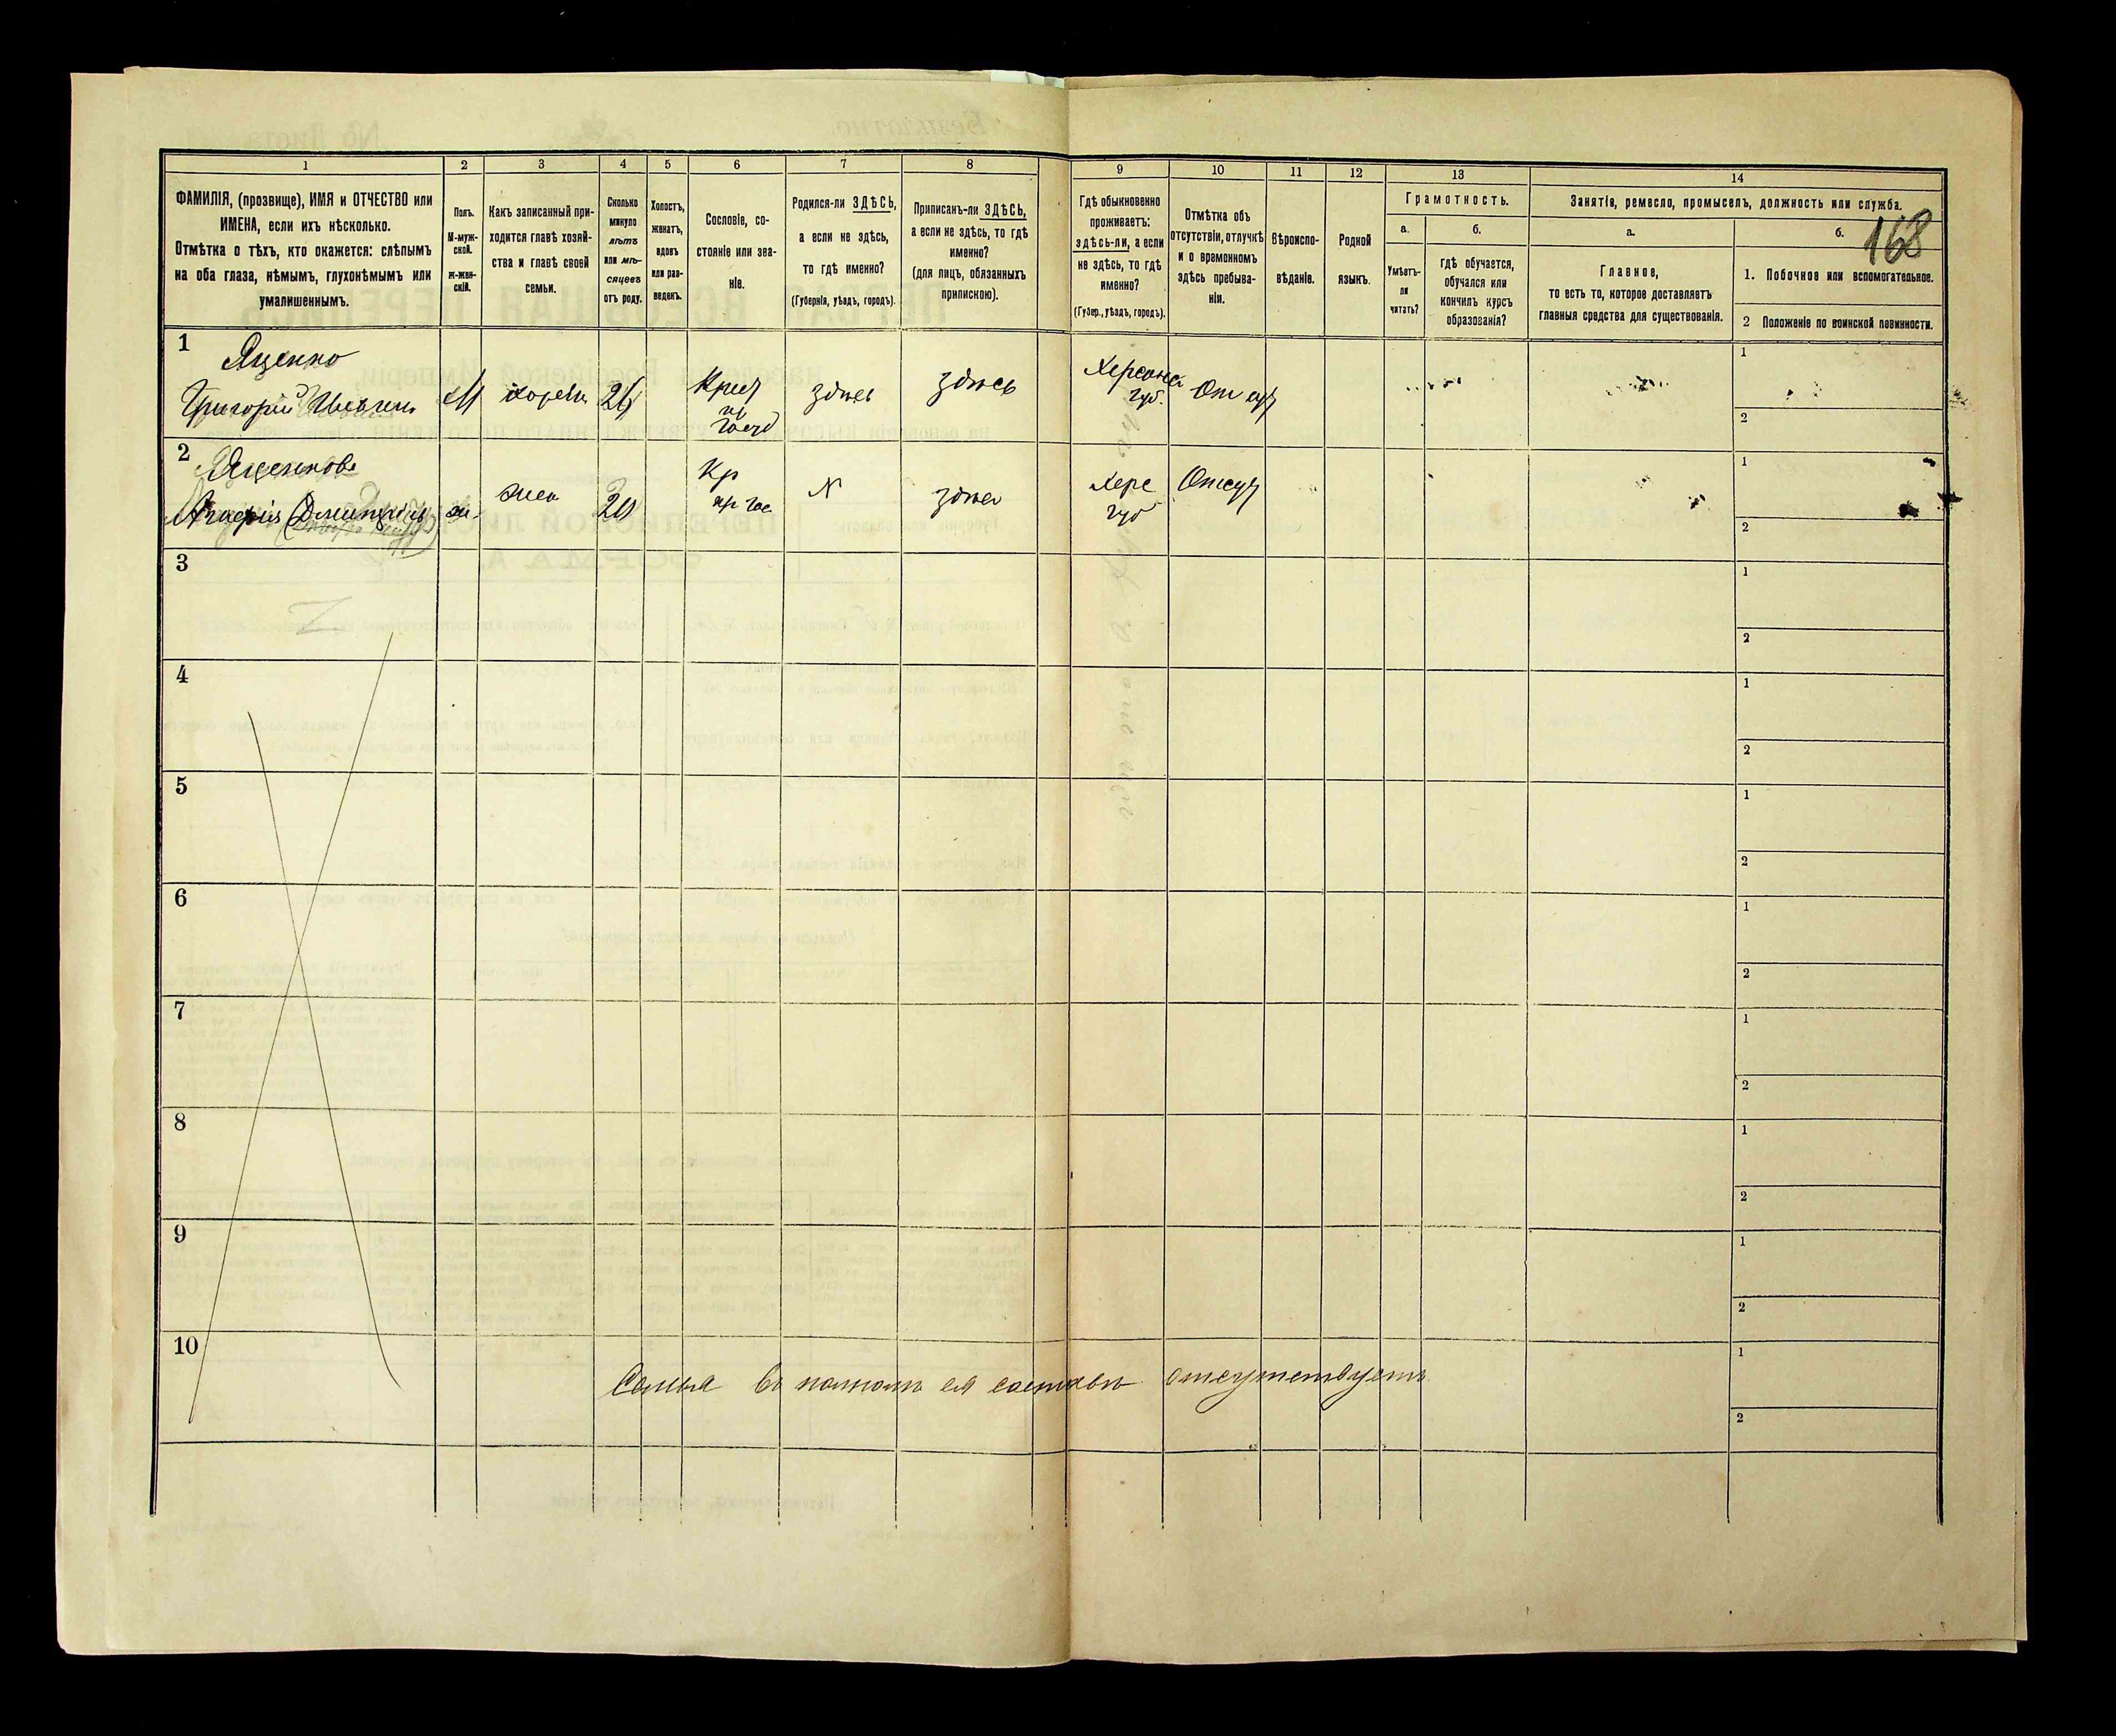 168
1 2 3 4 5 6 7 8 9 10 11 12 13 14
ФАМИЛІЯ, (прозвище), ИМЯ и ОТЧЕСТВО или
ИМЕНА, если ихъ нѣсколько.
Отмѣтка о тѣхъ, кто окажется: слѣпымъ
на оба глаза, нѣмымъ, глухонѣмымъ или
умалишеннымъ.
Полъ.
М-муж-
ской.
Ж-жен-
скій.
Какъ записанный при-
ходится главѣ хозяй-
ства и главѣ своей
семьи.
Сколько
минуло
лѣтъ
или мѣ-
сяцевъ
отъ роду.
Холостъ,
женатъ,
вдовъ
или раз-
веденъ.
Сословіе, со-
стояніе или зва-
ніе.
Родился-ли ЗДѢСЬ,
а если не здѣсь,
то гдѣ именно?
(Губернія, уѣздъ, городъ).
Приписанъ-ли ЗДѢСЬ,
а если не здѣсь, то гдѣ
именно?
(для лицъ, обязанныхъ
припискою).
Гдѣ обыкновенно
проживаетъ:
здѣсь-ли, а если
не здѣсь, то гдѣ
именно?
(Губер., уѣздъ, городъ).
Отмѣтка объ
отсутствіи, отлучкѣ
и о временномъ
здѣсь пребыва-
ніи.
Вѣроиспо-
вѣданіе.
Родной
языкъ.
Грамотность.
а.
Умѣетъ-
ли
читать?
б.
гдѣ обучается,
обучался или
кончилъ курсъ
образованія?
Занятіе, ремесло, промыселъ, должность или служба.
а.
Главное,
то есть то, которое доставляетъ
главныя средства для существованія.
б.
1. Побочное или вспомогательное.
2 Положеніе по воинской повинности.
1 Яценко
Григорій М здѣсь здѣсь Отсут
губ. 1
2
2 20 Кр N Херс Отсут
жена здѣсь губ 1
2
3 1
2
4 1
2
5 1
2
6 1
2
7 1
2
8 1
2
9 1
2
10 1
Семья въ полномъ ея составѣ отсутствуетъ
2